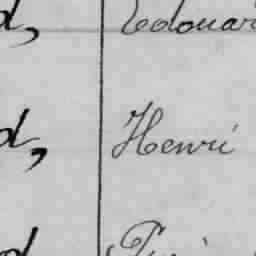 d, Edouard
d, Henri
d